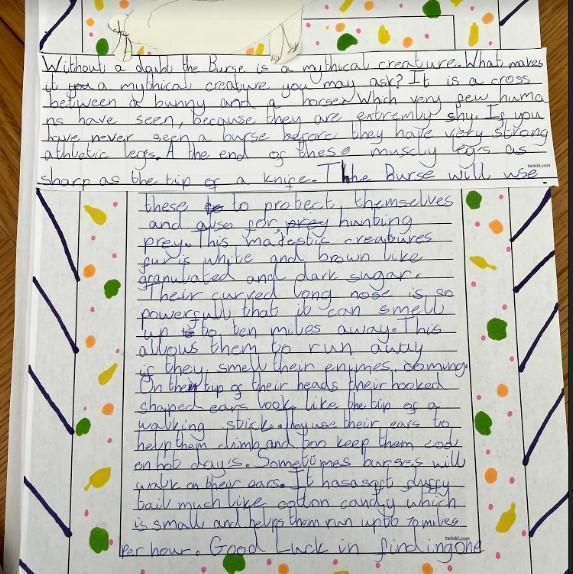 Without a daubt the Burse is a mythical creature. What makes
it a mythical creature you may ask? It is a cross
between a bunny and a horse. Which very few huma
ns have seen, because they are extremly shy. If you
have never seen a burse before they have very strong
athletic legs. A the end of these muscly legs as
sharp as the tip of a knife. The Burse will use
twinkl.com
these to protect themselves
and also for hunting
prey. This majestic creatures
fur is white and brown like
granulated and dark sugar.
Their curved long nose is so
powerfull that it can smell
up to ten miles away. This
allows them to run away
if they smell their enymes, coming.
On the tip of their heads their hooked
shaped ears look like the tip of a
walking stick. they use their ears to
help them climb and too keep them cool
on hot day's. Sometimes burses will
walk on their ears. It has a soft fluffy
tail much like cotton candy which
is small and helps them run upto 70 miles
twinkl.com
Per hour. Good Luck in finding one